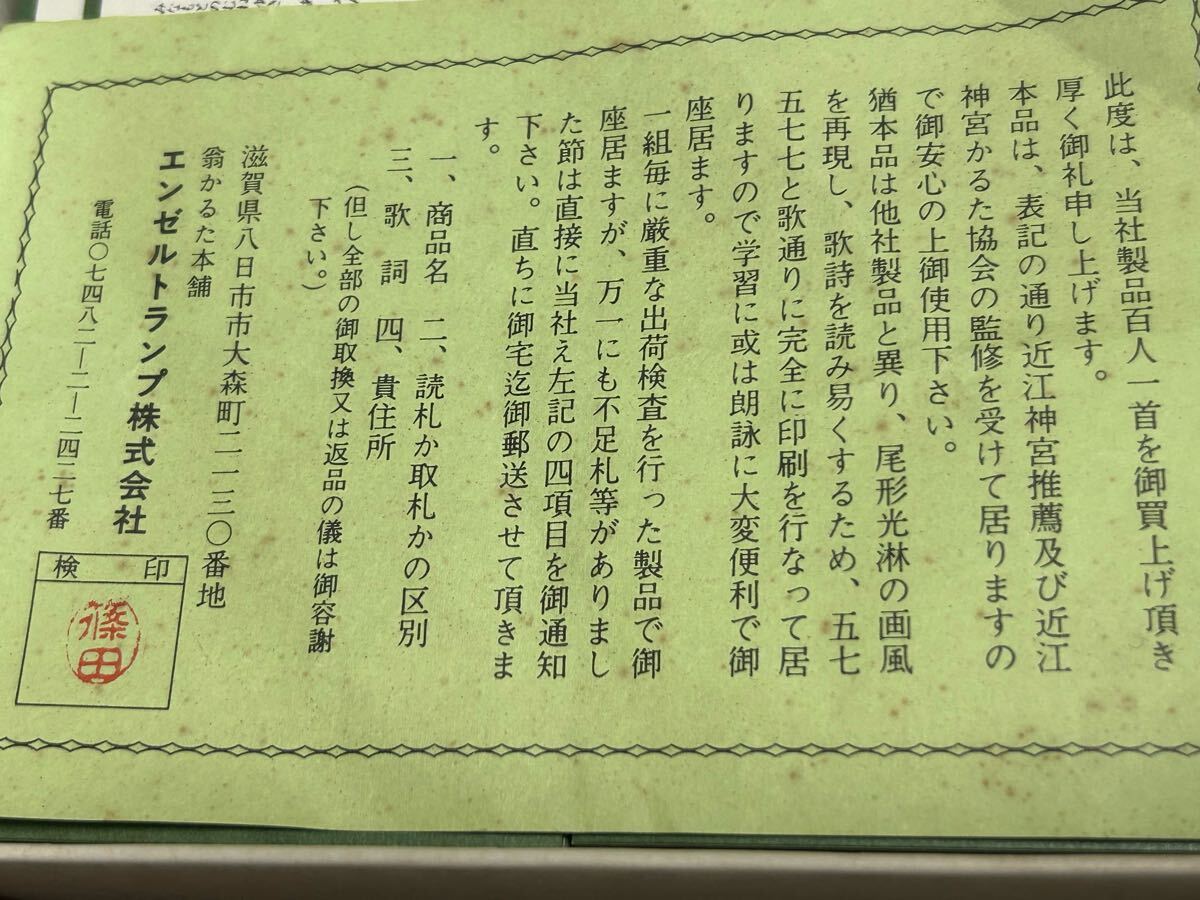 此度は、当社製品百人一首を御買上げ頂き
厚く御礼申し上げます。
本品は、表記の通り近江神宮推薦及び近江
神宮かるた協会の監修を受けて居りますの
で御安心の上御使用下さい。
猶本品は他社製品と異り、尾形光淋の画風
を再現し、歌詩を読み易くするため、五七
五七七と歌通りに完全に印刷を行なって居
りますので学習に或は朗詠に大変便利で御
座居ます。
一組毎に厳重な出荷検査を行った製品で御
座居ますが、万一にも不足札等がありまし
た節は直接に当社え左記の四項目を御通知
下さい。直ちに御宅迄御郵送させて頂きま
す。
一、商品名 二、読札か取札かの区別
三、歌詞 四、貴住所
(但し全部の御取換又は返品の儀は御容謝
下さい。)
滋賀県八日市市大森町二一三〇番地
翁かるた本舗
エンゼルトランプ株式会社
電話〇七四八二―二―二四二七番
検印
篠田